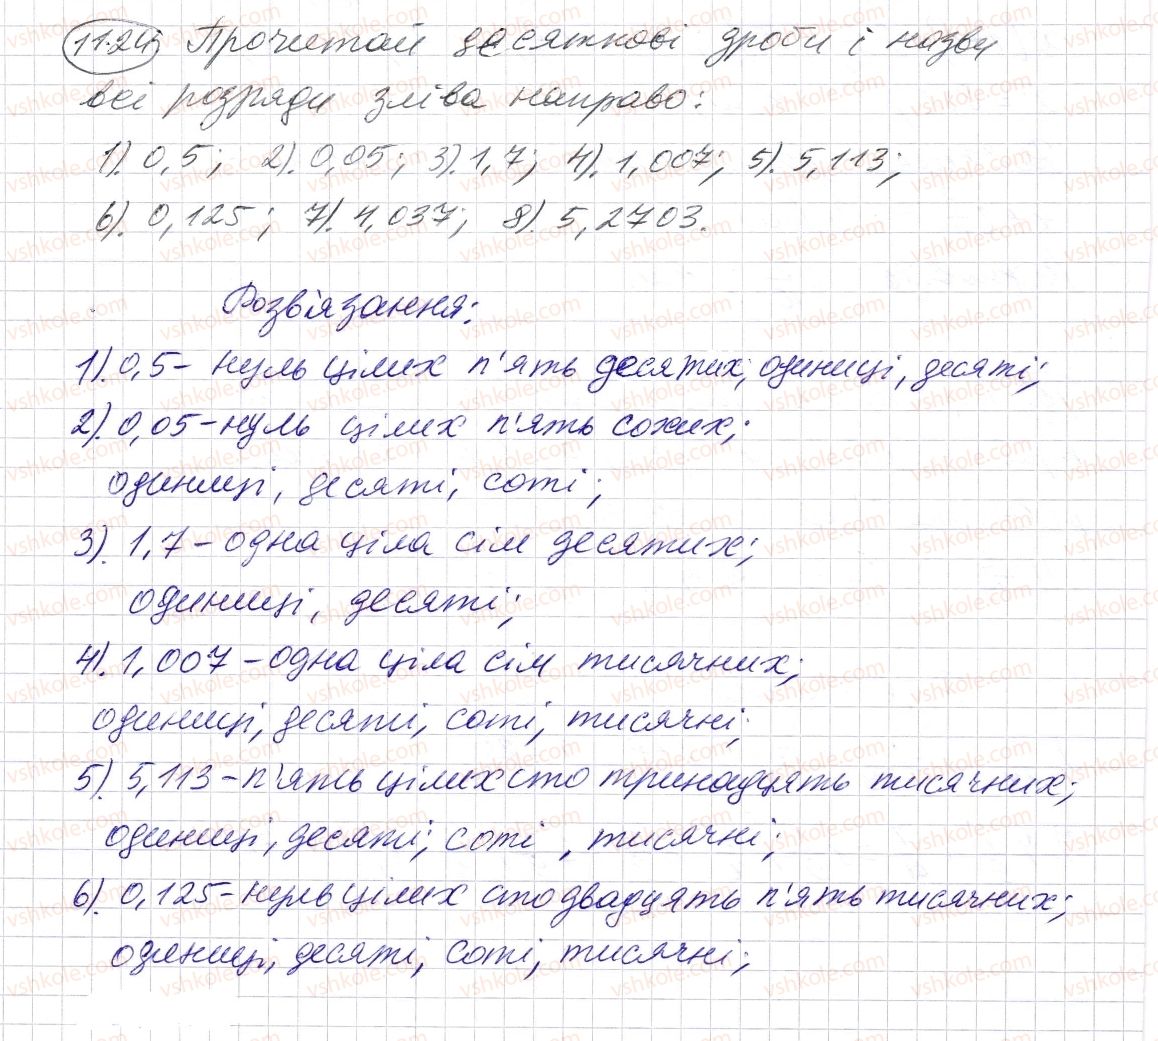 1124 Прочитай десяткові дроби і назви
всі розряди зліва направо:
1). 0,5; 2). 0,05; 3). 1,7; 4). 1,007; 5). 5,113;
6). 0,125; 7). 4,037; 8). 5,2703.
Розв'язання:
1). 0,5 - нуль цілих п'ять десятих; одиниці, десяті;
2). 0,05 - нуль цілих п'ять сотих;
одиниці, десяті, соті;
3). 1,7 - одна ціла сім десятих;
одиниці, десяті;
4). 1,007 - одна ціла сім тисячних;
одиниці, десяті, соті, тисячні;
5). 5,113 - п'ять цілих сто тринадцять тисячних;
одиниці, десяті; соті, тисячні;
6). 0,125 - нуль цілих сто двадцять п'ять тисячних;
одиниці, десяті, соті, тисячні;